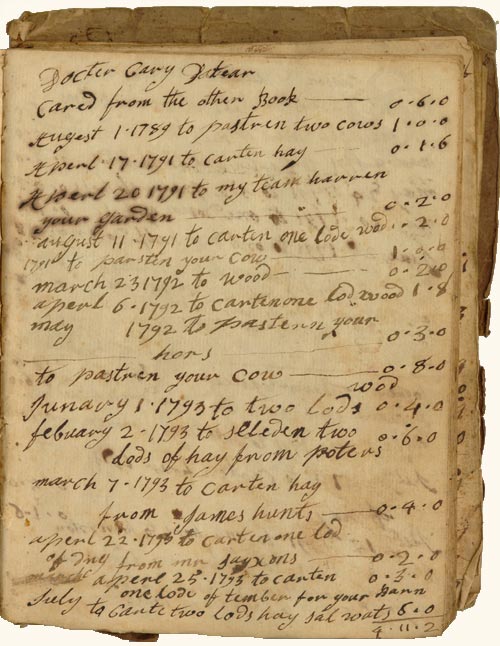 Docter Gary Dtear
Cared from the other Book 0 . 6 . 0
Augest 1 . 1789 to pastren two cows 1 . 0 . 0
Aperl . 17 . 1791 to carten hay 0 . 1 . 6
Aperl 20 1791 to my team harren
your garden 0 . 2 . 0
august 11 . 1791 to carten one lode wod . 2 . 0
1791 to parsten your cow 1 . 0 . 0
march 23 1792 to wood 0 . 2 . 0
aperl 6 . 1792 to carten one lod wood 1 . 8
may 1792 to pastern your
hors 0 . 3 . 0
to pastren your cow 0 . 8 . 0
wod
Junary 1 . 1793 to two lods 0 . 4 . 0
febuary 2 . 1793 to sleden two
lods of hay from poters 0 . 6 . 0
march 7 . 1793 to carten hay
from James hunts 0 . 4 . 0
aperl 22 . 1793 to carten one lod
of dng from mr saxons 0 . 2 . 0
march aperl 25 . 1793 to carten 0 . 3 . 0
one lode of tember for your Barn
July to Carte two lods hay sal wats 6 . 0
4 . 11 . 2